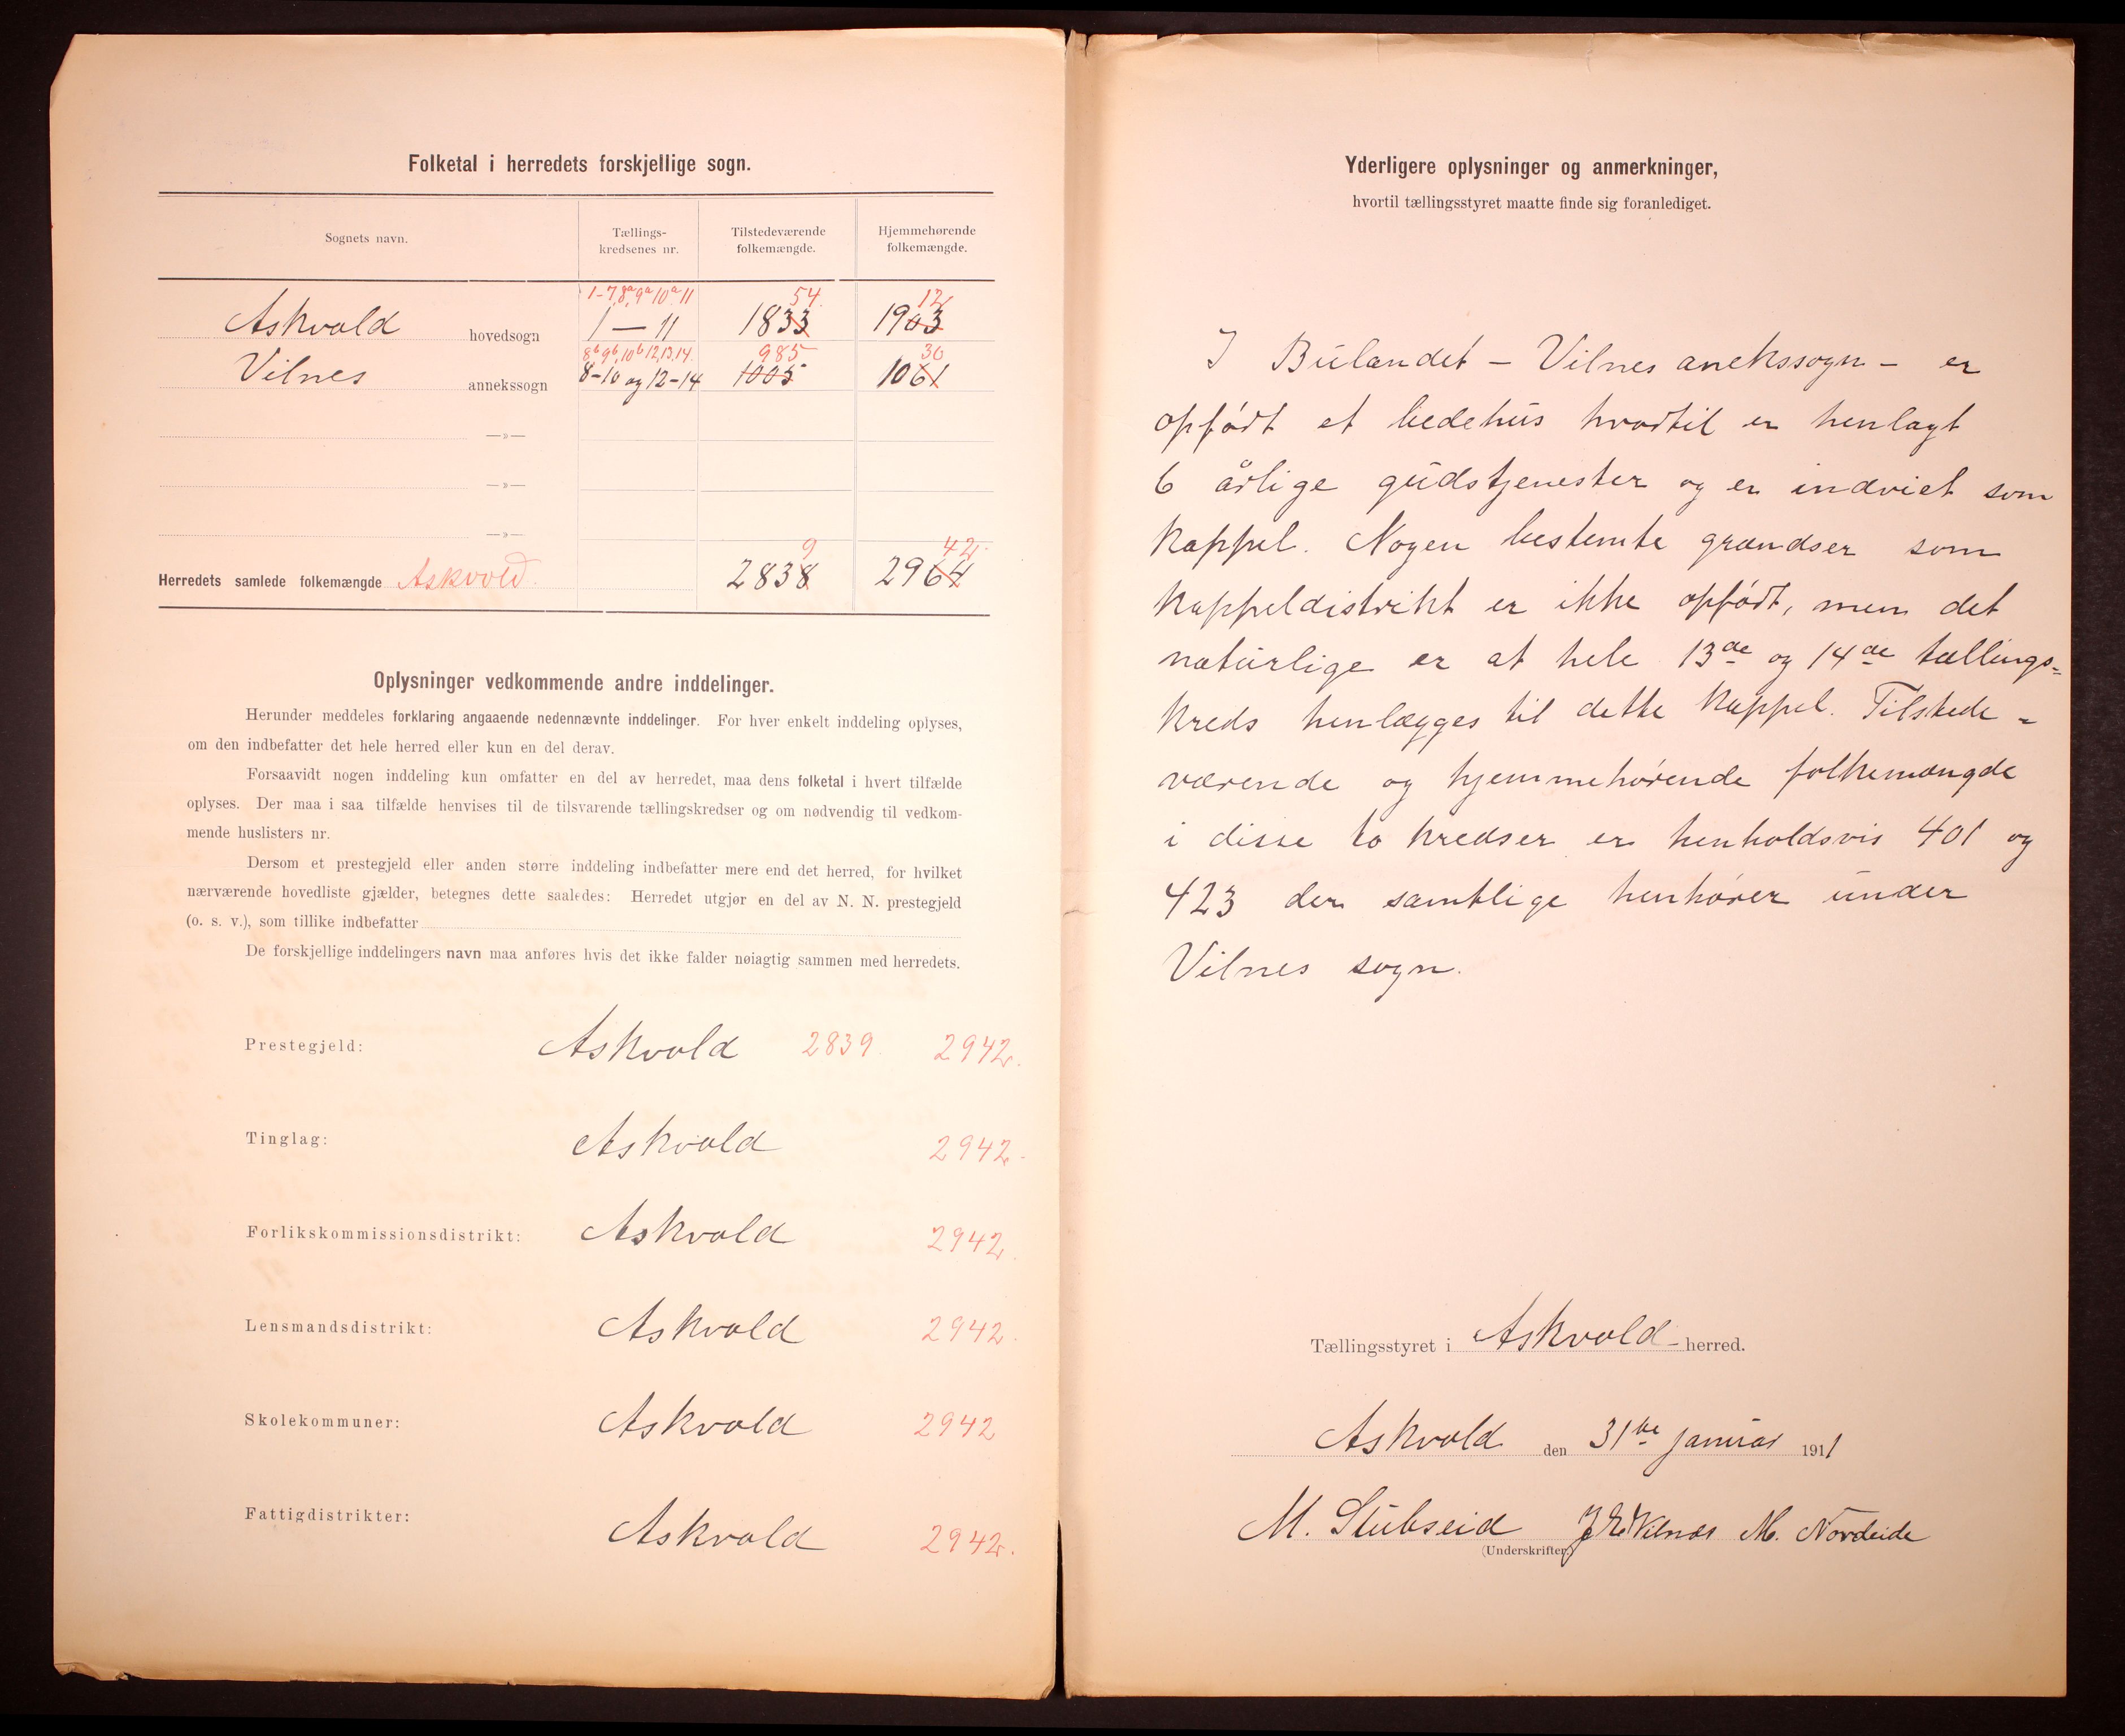 Folketal i herredets forskjellige sogn.
Sognets navn. Tællings-kredsenes nr. Tilstedeværende folkemængde. Hjemmehørende folkemængde.
1-7, 8a, 9a 10a 11 54. 12
Askvold hovedsogn 1 — 11 1833 1903
8b 9b, 10b 12, 13, 14. 985 30
Vilnes annekssogn 8-10 og 12-14 1005 1061
—»—
—»—
—»—
9 42.
Herredets samlede folkemængde Askvold. 2838 2964
Oplysninger vedkommende andre inddelinger.
Herunder meddeles forklaring angaaende nedennævnte inddelinger. For hver enkelt inddeling oplyses,
om den indbefatter det hele herred eller kun en del derav.
Forsaavidt nogen inddeling kun omfatter en del av herredet, maa dens folketal i hvert tilfælde
oplyses. Der maa i saa tilfælde henvises til de tilsvarende tællingskredser og om nødvendig til vedkom-
mende huslisters nr.
Dersom et prestegjeld eller anden større inddeling indbefatter mere end det herred, for hvilket
nærværende hovedliste gjælder, betegnes dette saaledes: Herredet utgjør en del av N. N. prestegjeld
(o. s. v.), som tillike indbefatter
De forskjellige inddelingers navn maa anføres hvis det ikke falder nøiagtig sammen med herredets.
Prestegjeld: Askvold 2839. 2942.
Tinglag: Askvold 2942.
Forlikskommissionsdistrikt: Askvold 2942.
Lensmandsdistrikt: Askvold 2942.
Skolekommuner: Askvold 2942
Fattigdistrikter: Askvold 2942.
Yderligere oplysninger og anmerkninger,
hvortil tællingsstyret maatte finde sig foranlediget.
I Bulandet - Vilnes anekssogn - er
opført et bedehus hvortil er henlagt
6 årlige gudstjenester og er indviet som
kappel. Nogen bestemte grændser som
kappeldistrikt er ikke opført, men det
naturlige er at hele 13de og 14de tællings=
kreds henlægges til dette kappel. Tilstede-
værende og hjemmehørende folkemængde
i disse to kredser er henholdsvis 401 og
423 der samtlige henhører under
Vilnes sogn.
Tællingsstyret i Askvold - herred.
Askvold den 31te januar 1911
M. Stubseid Vilnes M. Nordeide
(Underskrifter.)